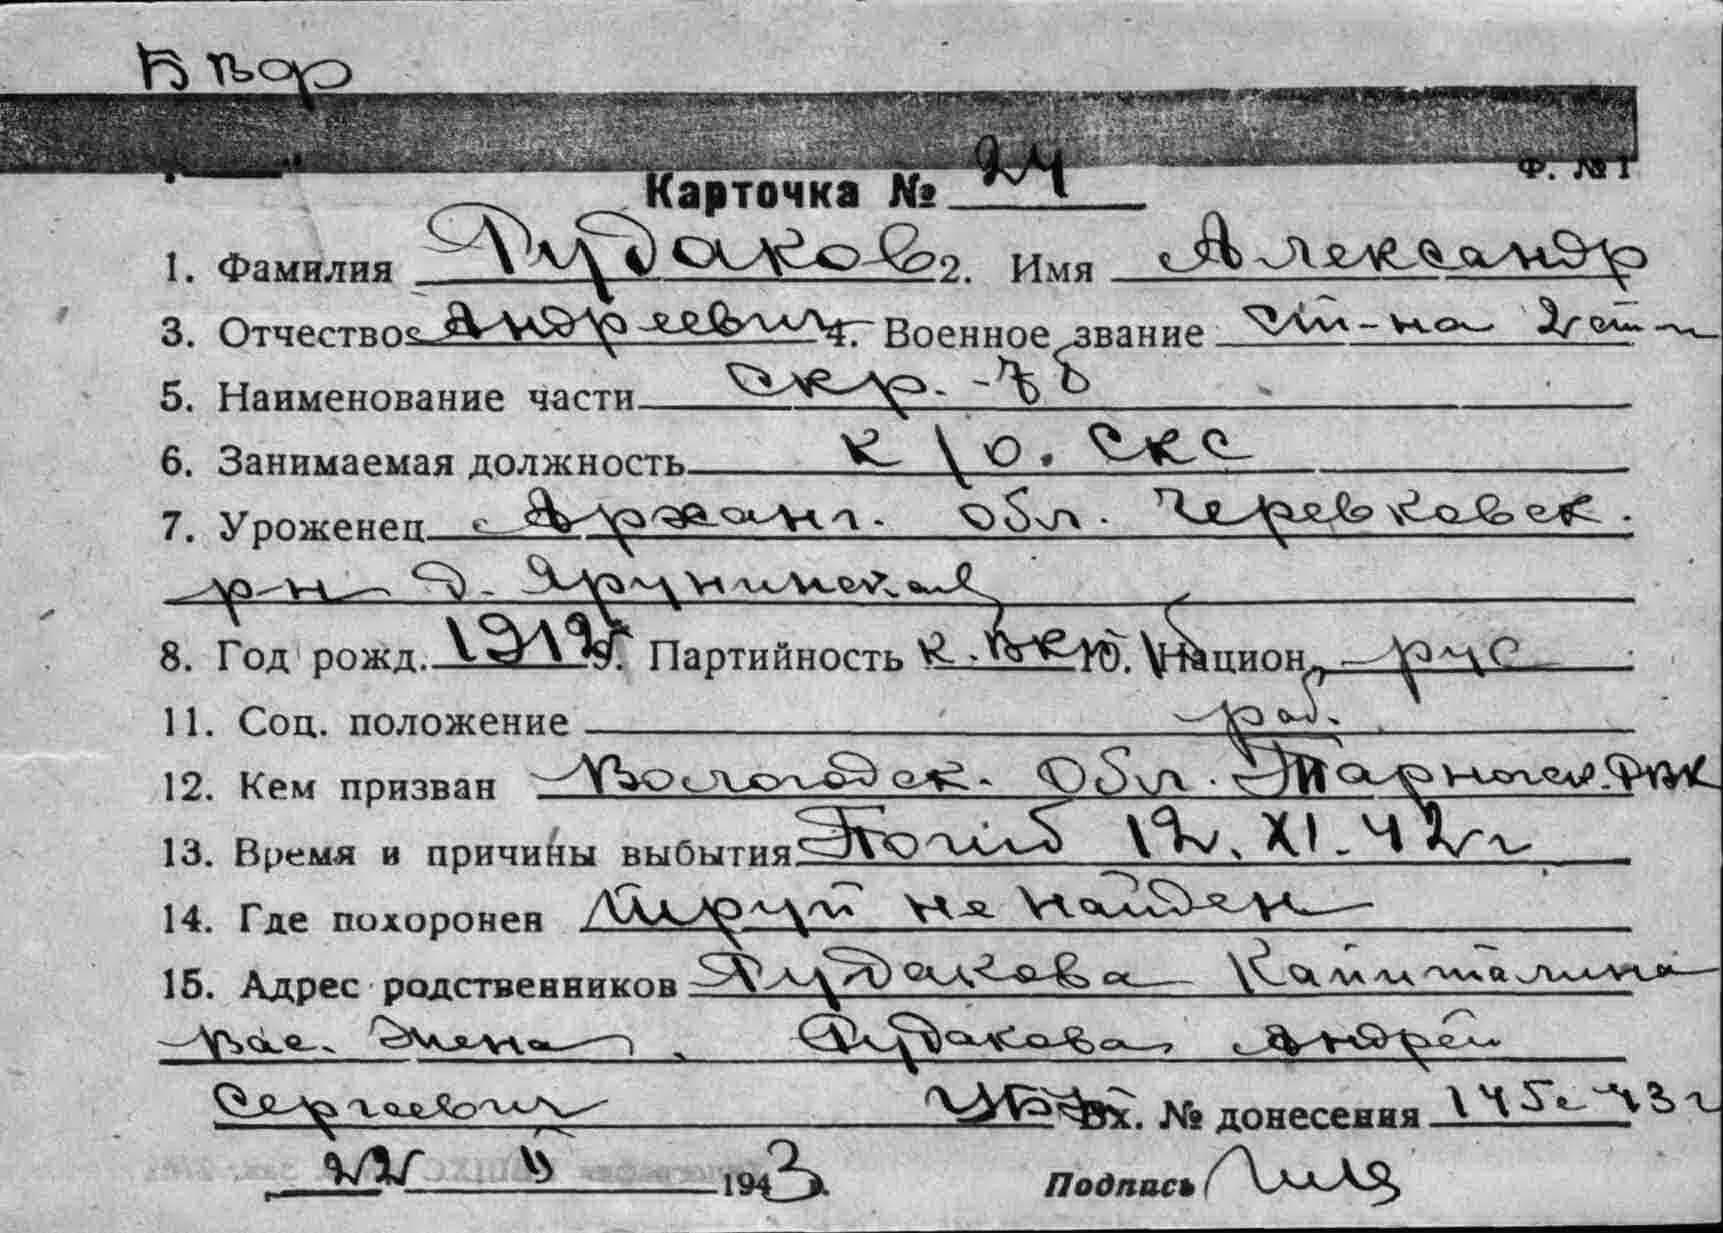 БВФ
Ф. № 1
Карточка № 24
1. Фамилия Рудаков 2. Имя Александр
3. Отчество Андреевич 4. Военное звание ст-на 2 ст-и
5. Наименование части скр. - 76
6. Занимаемая должность к/о. СКС
7. Уроженец Арханг. обл. Черевковск.
рн д. Ярунинская
8. Год рожд. 1912 9. Партийность к. ВКП/б 10. Национ. рус
11. Соц. положение раб.
12. Кем призван Вологодск. обл. Тарногск. РВК
13. Время и причины выбытия Погиб 12. XI. 42 г
14. Где похоронен Труп не найден
15. Адрес родственников Рудакова Капиталина
Вас. Жена, Рудакова Андрей
Сергеевич Вх. № донесения 145с 43 г
22 II 1943 Подпись